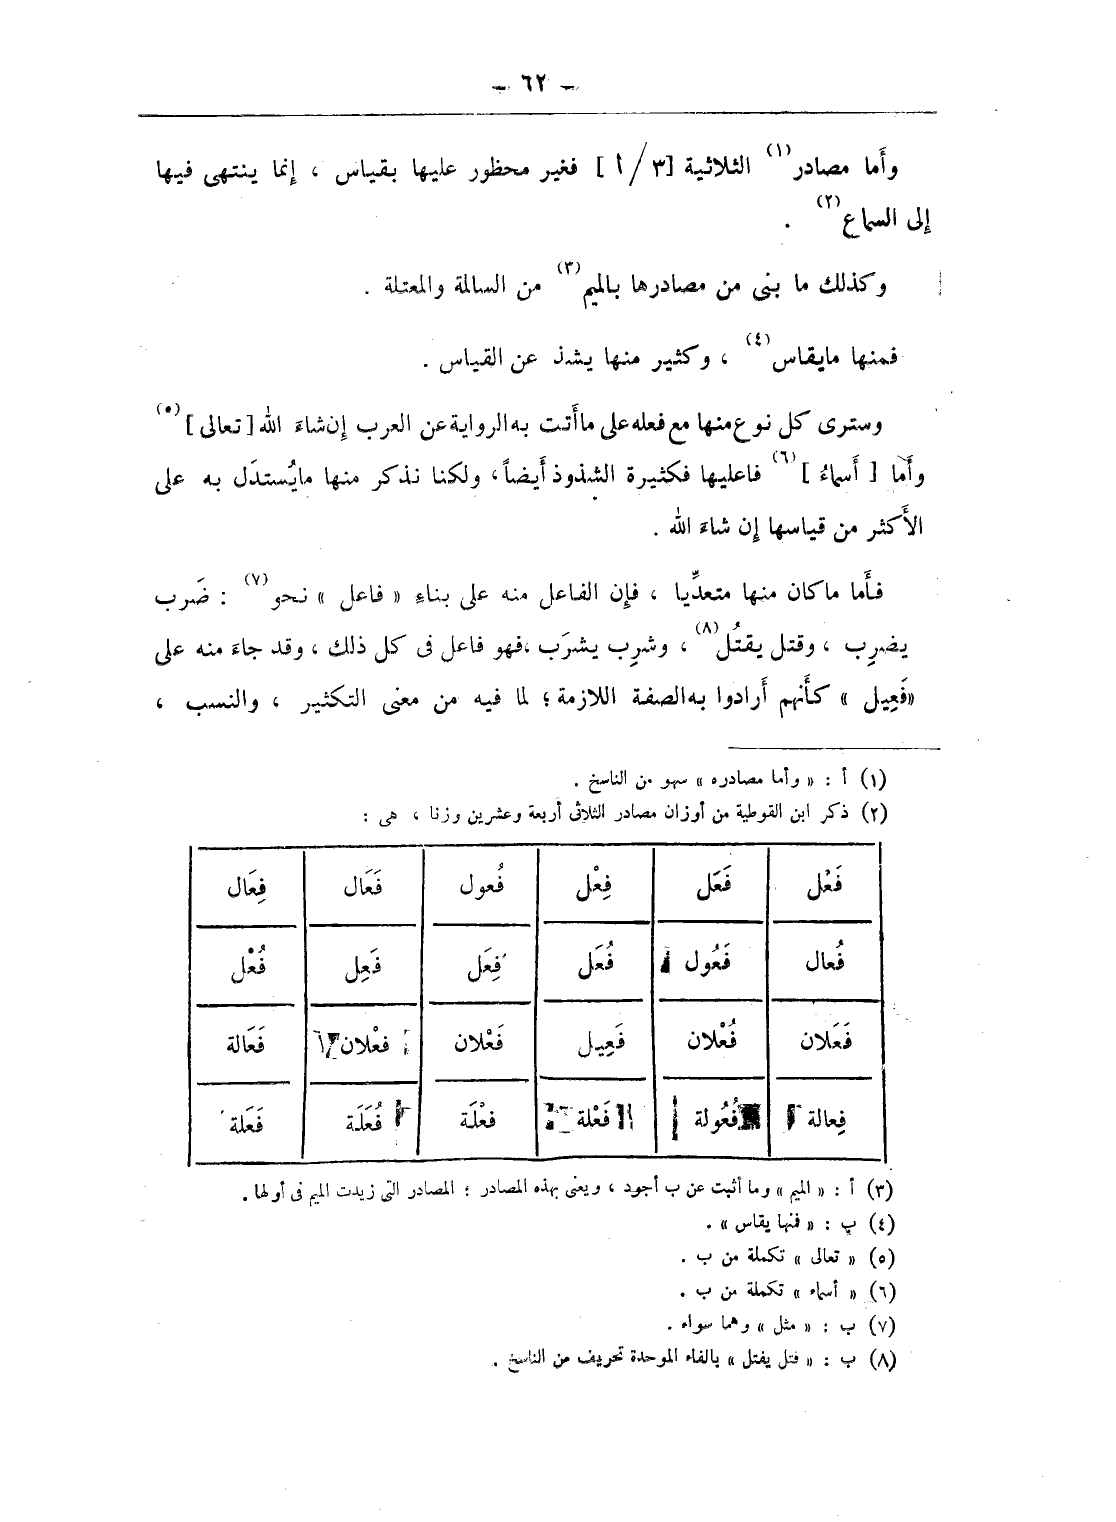 – ٦٢ –
وأَما مصادر(١) الثلاثية [٣/أ] فغير محظور عليها بقياس ، إنما ينتهى فيها
إلى السماع(٢) .
وكذلك ما بنى من مصادرها بالميم(٣) من السالمة والمعتلة .
فمنها مايقاس(٤) ، وكثير منها يشذ عن القياس .
وسترى كل نوع منها مع فعله على ما أَتت به الرواية عن العرب إن شاءَ الله [ تعالى ](٥)
وأَما [ أَسماءُ ](٦) فاعليها فكثيرة الشذوذ أَيضاً، ولكنا نذكر منها مايُستدَل به على
الأَكثر من قياسها إن شاءَ الله .
فأَما ماكان منها متعدِّيا ، فإن الفاعل منه على بناءِ « فاعل » نحو(٧) : ضَرب
يضرِب ، وقتل يقتُل(٨) ، وشرِب يشرَب ،فهو فاعل فى كل ذلك ، وقد جاءَ منه على
«فَعِيل » كأَنهم أَرادوا به الصفة اللازمة ؛ لما فيه من معنى التكثير ، والنسب ،
(١) أ : « وأما مصادره » سهو من الناسخ .
(٢) ذكر ابن القوطية من أوزان مصادر الثلاثى أربعة وعشرين وزنا ، هى :
فَعْل فَعَل فِعْل فُعول فَعَال فِعَال
فُعال فَعُول فُعَل فِعَل فَعِل فُعْل
فَعَلان فُعْلان فَعِيل فَعْلان فعْلان فَعَالة
فِعالة فُعُولة فَعْلة فعْلَة فُعَلَة فَعَلة
(٣) أ : « الميم » وما أثبت عن ب أجود ، ويعنى بهذه المصادر : المصادر التى زيدت الميم فى أولها .
(٤) ب : « فمنها يقاس » .
(٥) « تعالى » تكملة من ب .
(٦) « أسماء » تكملة من ب .
(٧) ب : « مثل » وهما سواء .
(٨) ب : « فتل يفتل » بالفاء الموحدة تحريف من الناسخ .